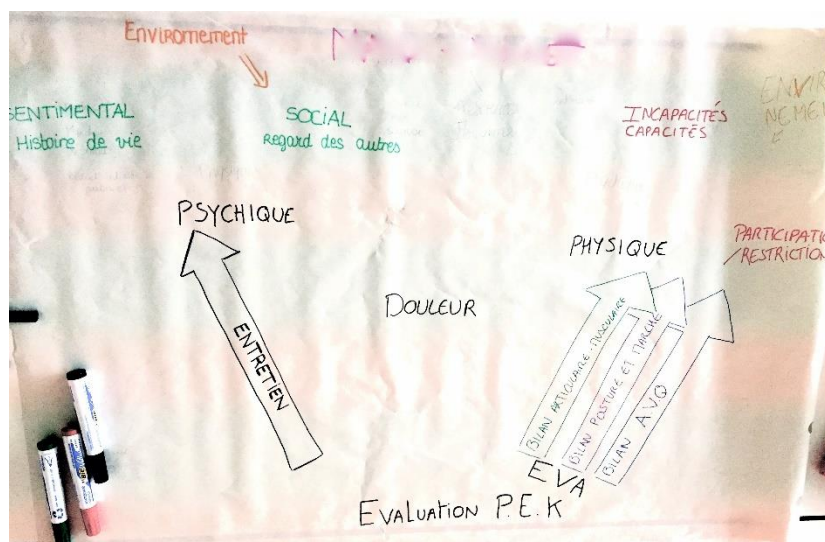 Enviromement
SENTIMENTAL
Histoire de vie
SOCIAL
Regard des autres
INCAPACITÉS
CAPACITÉS
ENVIR
NEMEN
PSYCHIQUE
PHYSIQUE
PARTICIPATIO
/RESTRICTION
DOULEUR
ENTRETIEN
BILAN ARTICULAIRE-MUSCULAIRE
BILAN POSTURE ET MARCHE
BILAN AVQ
EVA
EVALUATION P.E.K